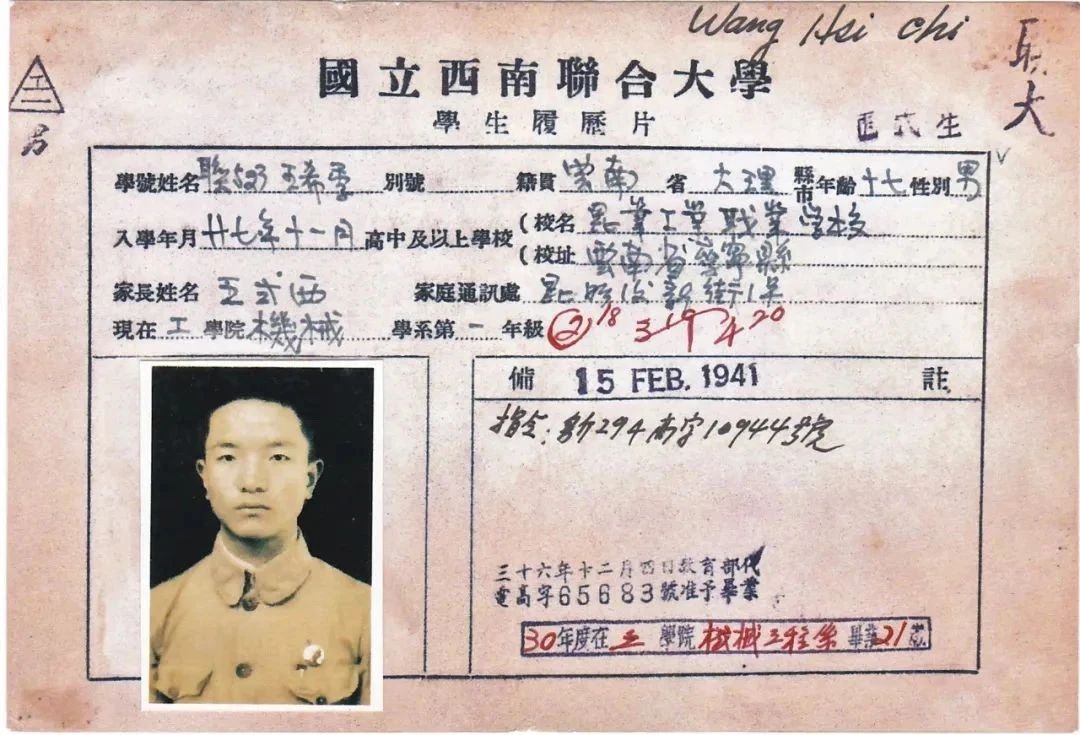 Wang Hsi chi
國立西南聯合大學
學生履歷片
工
男
正式生
大
學號姓名 聯523 王希季 別號 籍貫 雲南 省 大理 縣市 年齡 十七 性別 男
入學年月 廿七年十一月 高中及以上學校 (校名 工業職業學校
(校址 雲南省 縣
家長姓名 王式西 家庭通訊處
現在 工 學院 機械 學系第 一 年級 ② 18 3 19 4 20
備 15 FEB. 1941 註
指令: 294 高字10944號
三十六年十二月四日教育部代
電高字65683號准予畢業
30年度在 工 學院 機械工程系 畢業 21